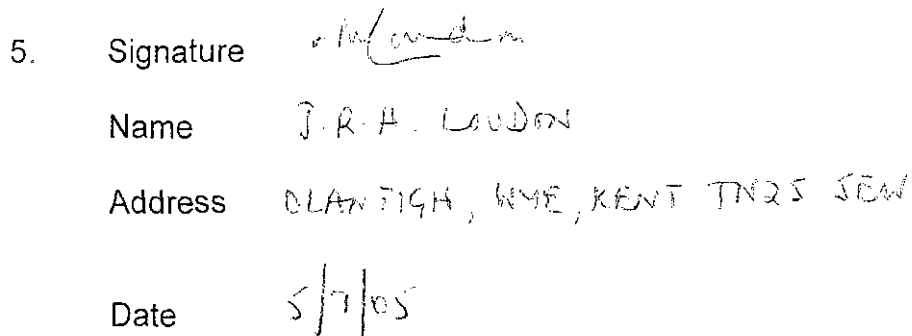 5. Signature
Name J.R.H. LOUDON
Address OLANTIGH, WYE, KENT TN25 5EW
Date 5/7/05